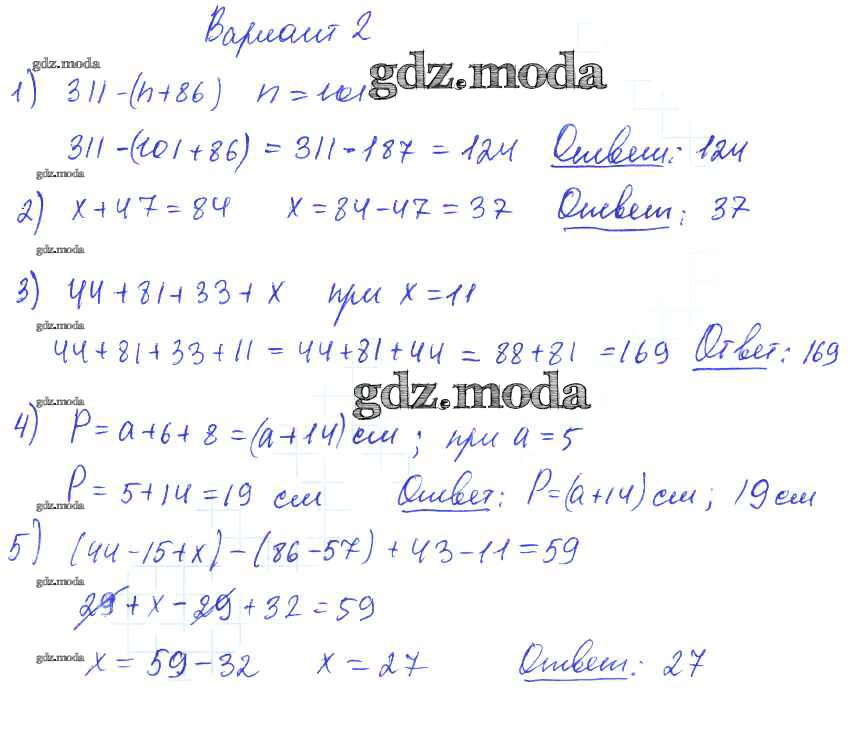 Вариант 2
gdz.moda
gdz.moda
1) 311-(n+86) n=101
311-(101+86)=311-187=124 Ответ: 124
gdz.moda
2) x+47=84 x=84-47=37 Ответ: 37
gdz.moda
3) 44+81+33+x при x=11
gdz.moda
44+81+33+11=44+81+44=88+81=169 Ответ: 169
gdz.moda
gdz.moda
4) P=a+6+8=(a+14)см; при a=5
P=5+14=19 см Ответ: P=(a+14)см; 19см
gdz.moda
5) (44-15+x)-(86-57)+43-11=59
gdz.moda
29+x-29+32=59
gdz.moda
x=59-32 x=27 Ответ: 27